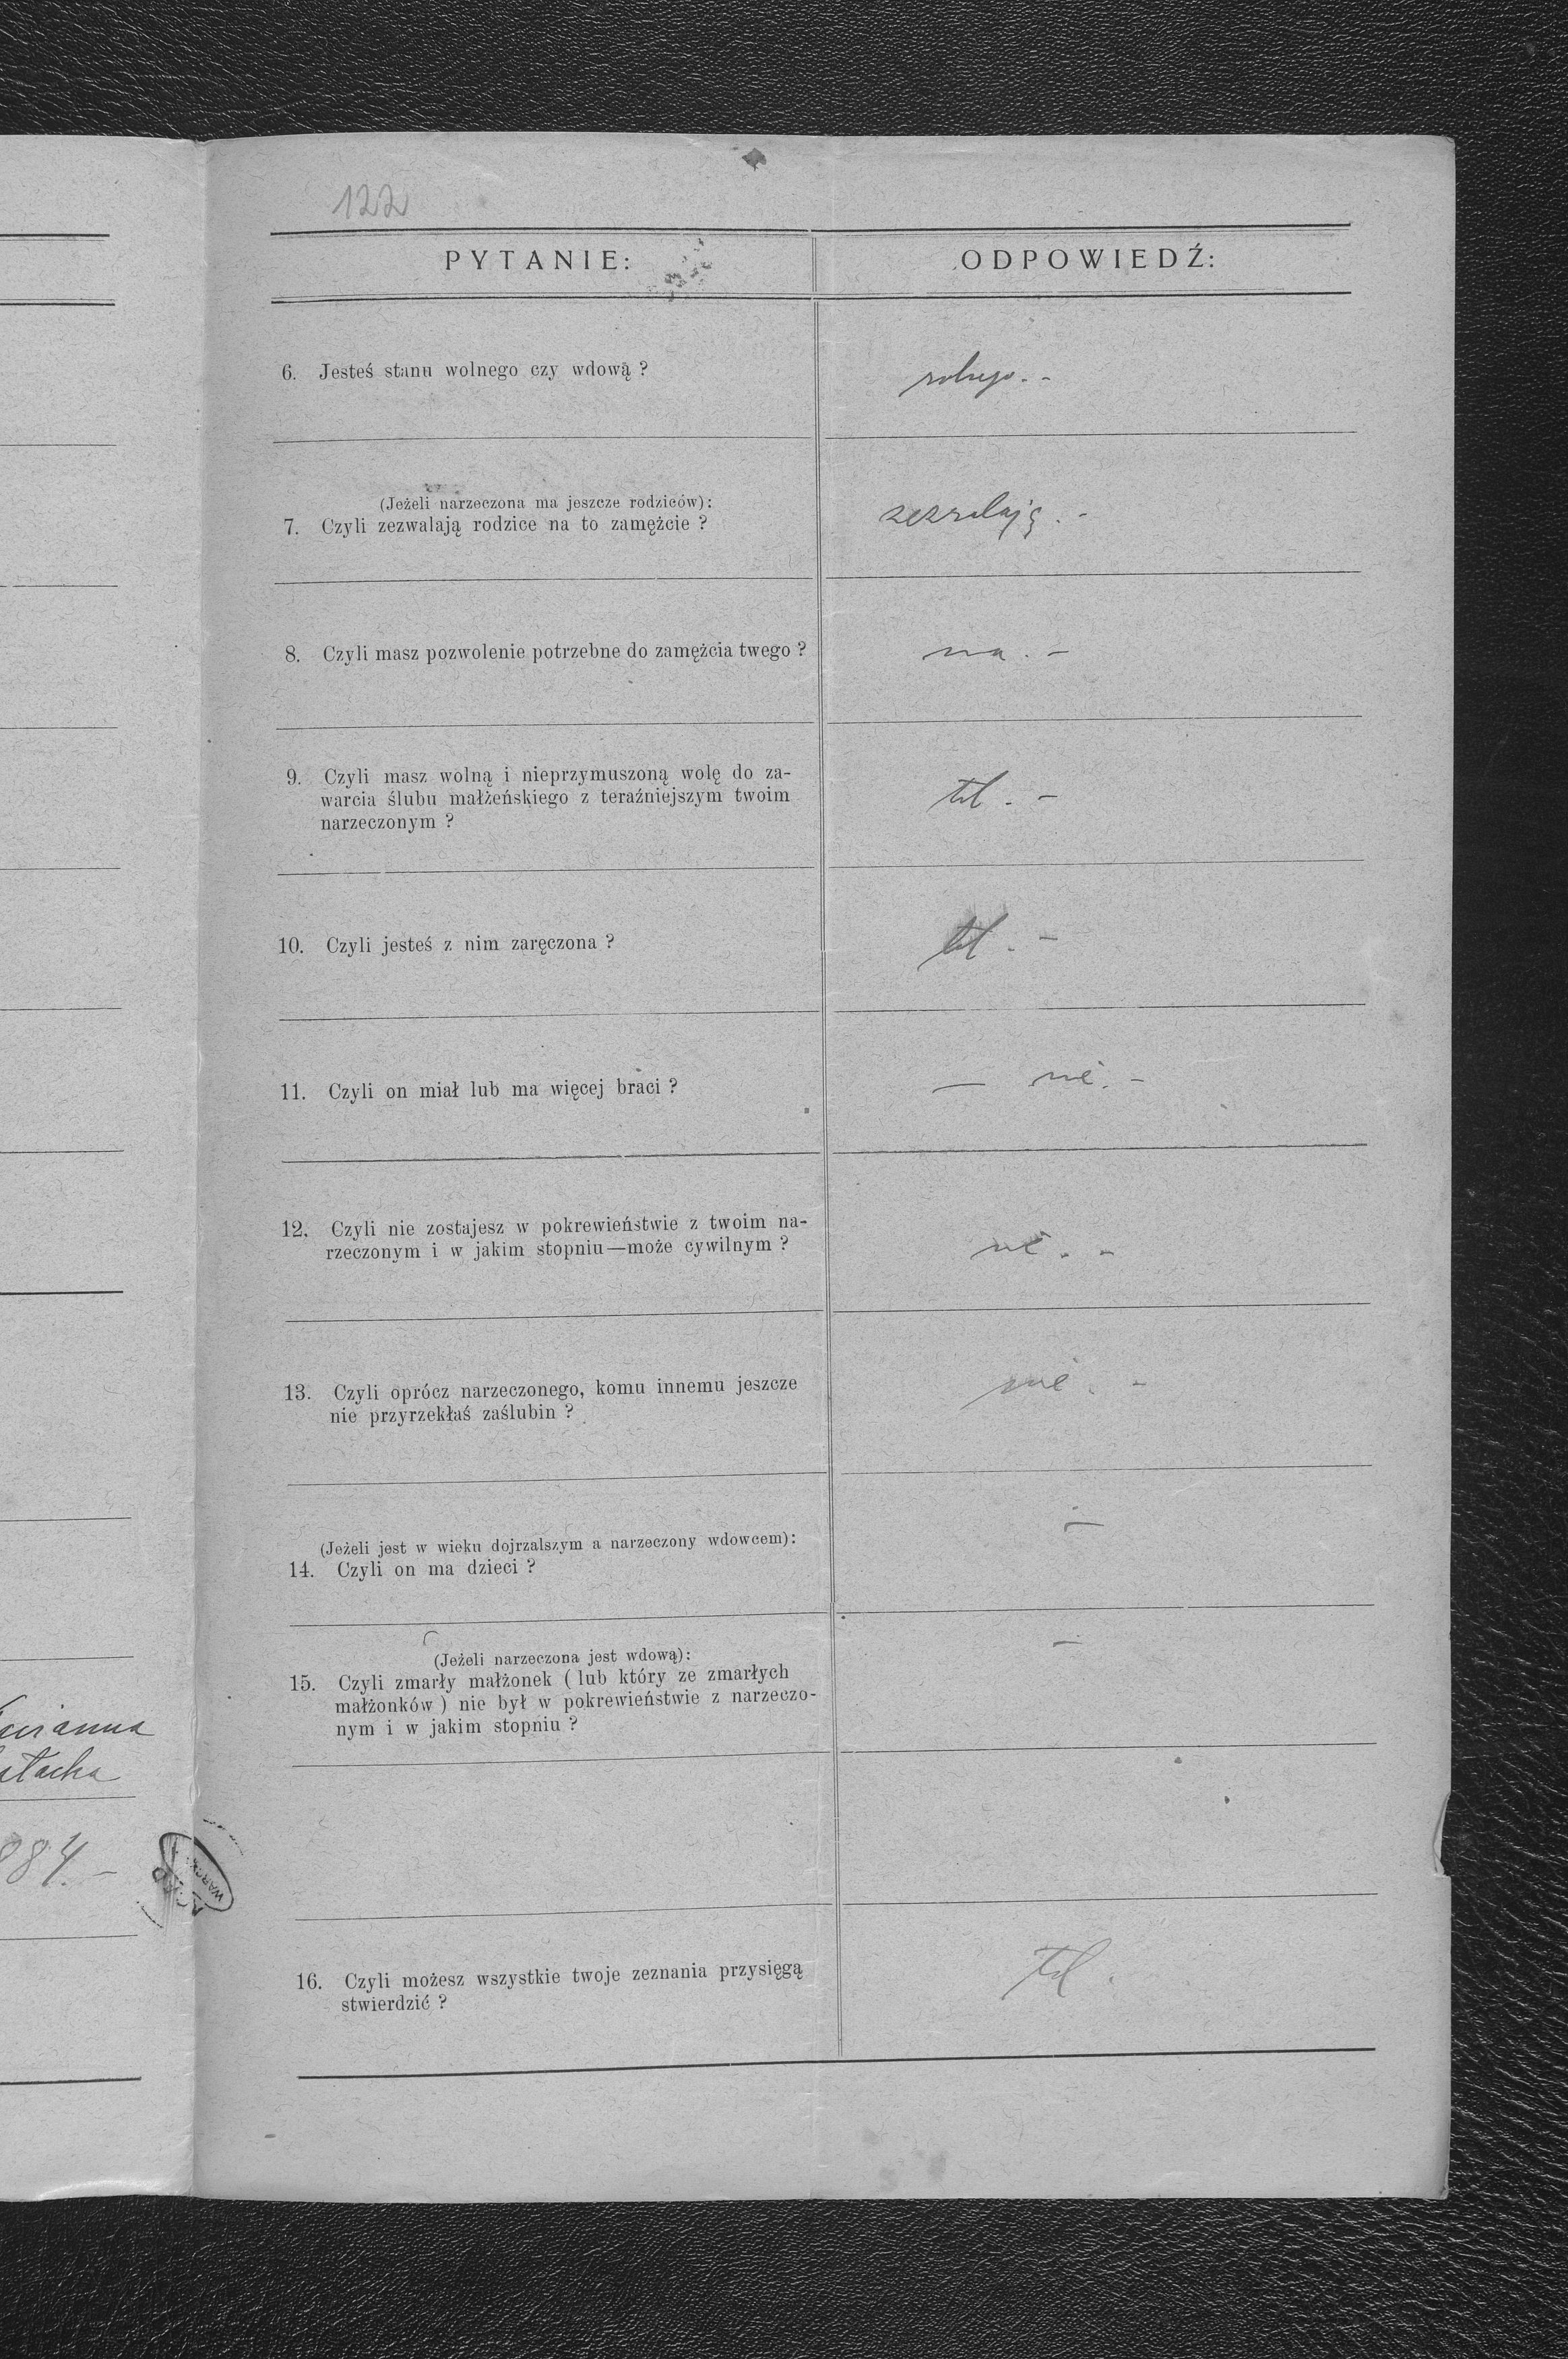 122
PYTANIE:
ODPOWIEDŹ:
6. Jesteś stanu wolnego czy wdową ?
wolnego. -
(Jeżeli narzeczona ma jeszcze rodziców):
7. Czyli zezwalają rodzice na to zamężcie ?
zezwalają. -
8. Czyli masz pozwolenie potrzebne do zamężcia twego ?
ma. -
9. Czyli masz wolną i nieprzymuszoną wolę do za-
warcia ślubu małżeńskiego z teraźniejszym twoim
narzeczonym ?
tak. -
10. Czyli jesteś z nim zaręczona ?
tak. -
11. Czyli on miał lub ma więcej braci ?
— nie. -
12. Czyli nie zostajesz w pokrewieństwie z twoim na-
rzeczonym i w jakim stopniu—może cywilnym ?
nie. -
13. Czyli oprócz narzeczonego, komu innemu jeszcze
nie przyrzekłaś zaślubin ?
nie. -
(Jeżeli jest w wieku dojrzalszym a narzeczony wdowcem):
14. Czyli on ma dzieci ?
—
(Jeżeli narzeczona jest wdową):
15. Czyli zmarły małżonek ( lub który ze zmarłych
małżonków ) nie był w pokrewieństwie z narzeczo-
nym i w jakim stopniu ?
—
16. Czyli możesz wszystkie twoje zeznania przysięgą
stwierdzić ?
tak.
884. —